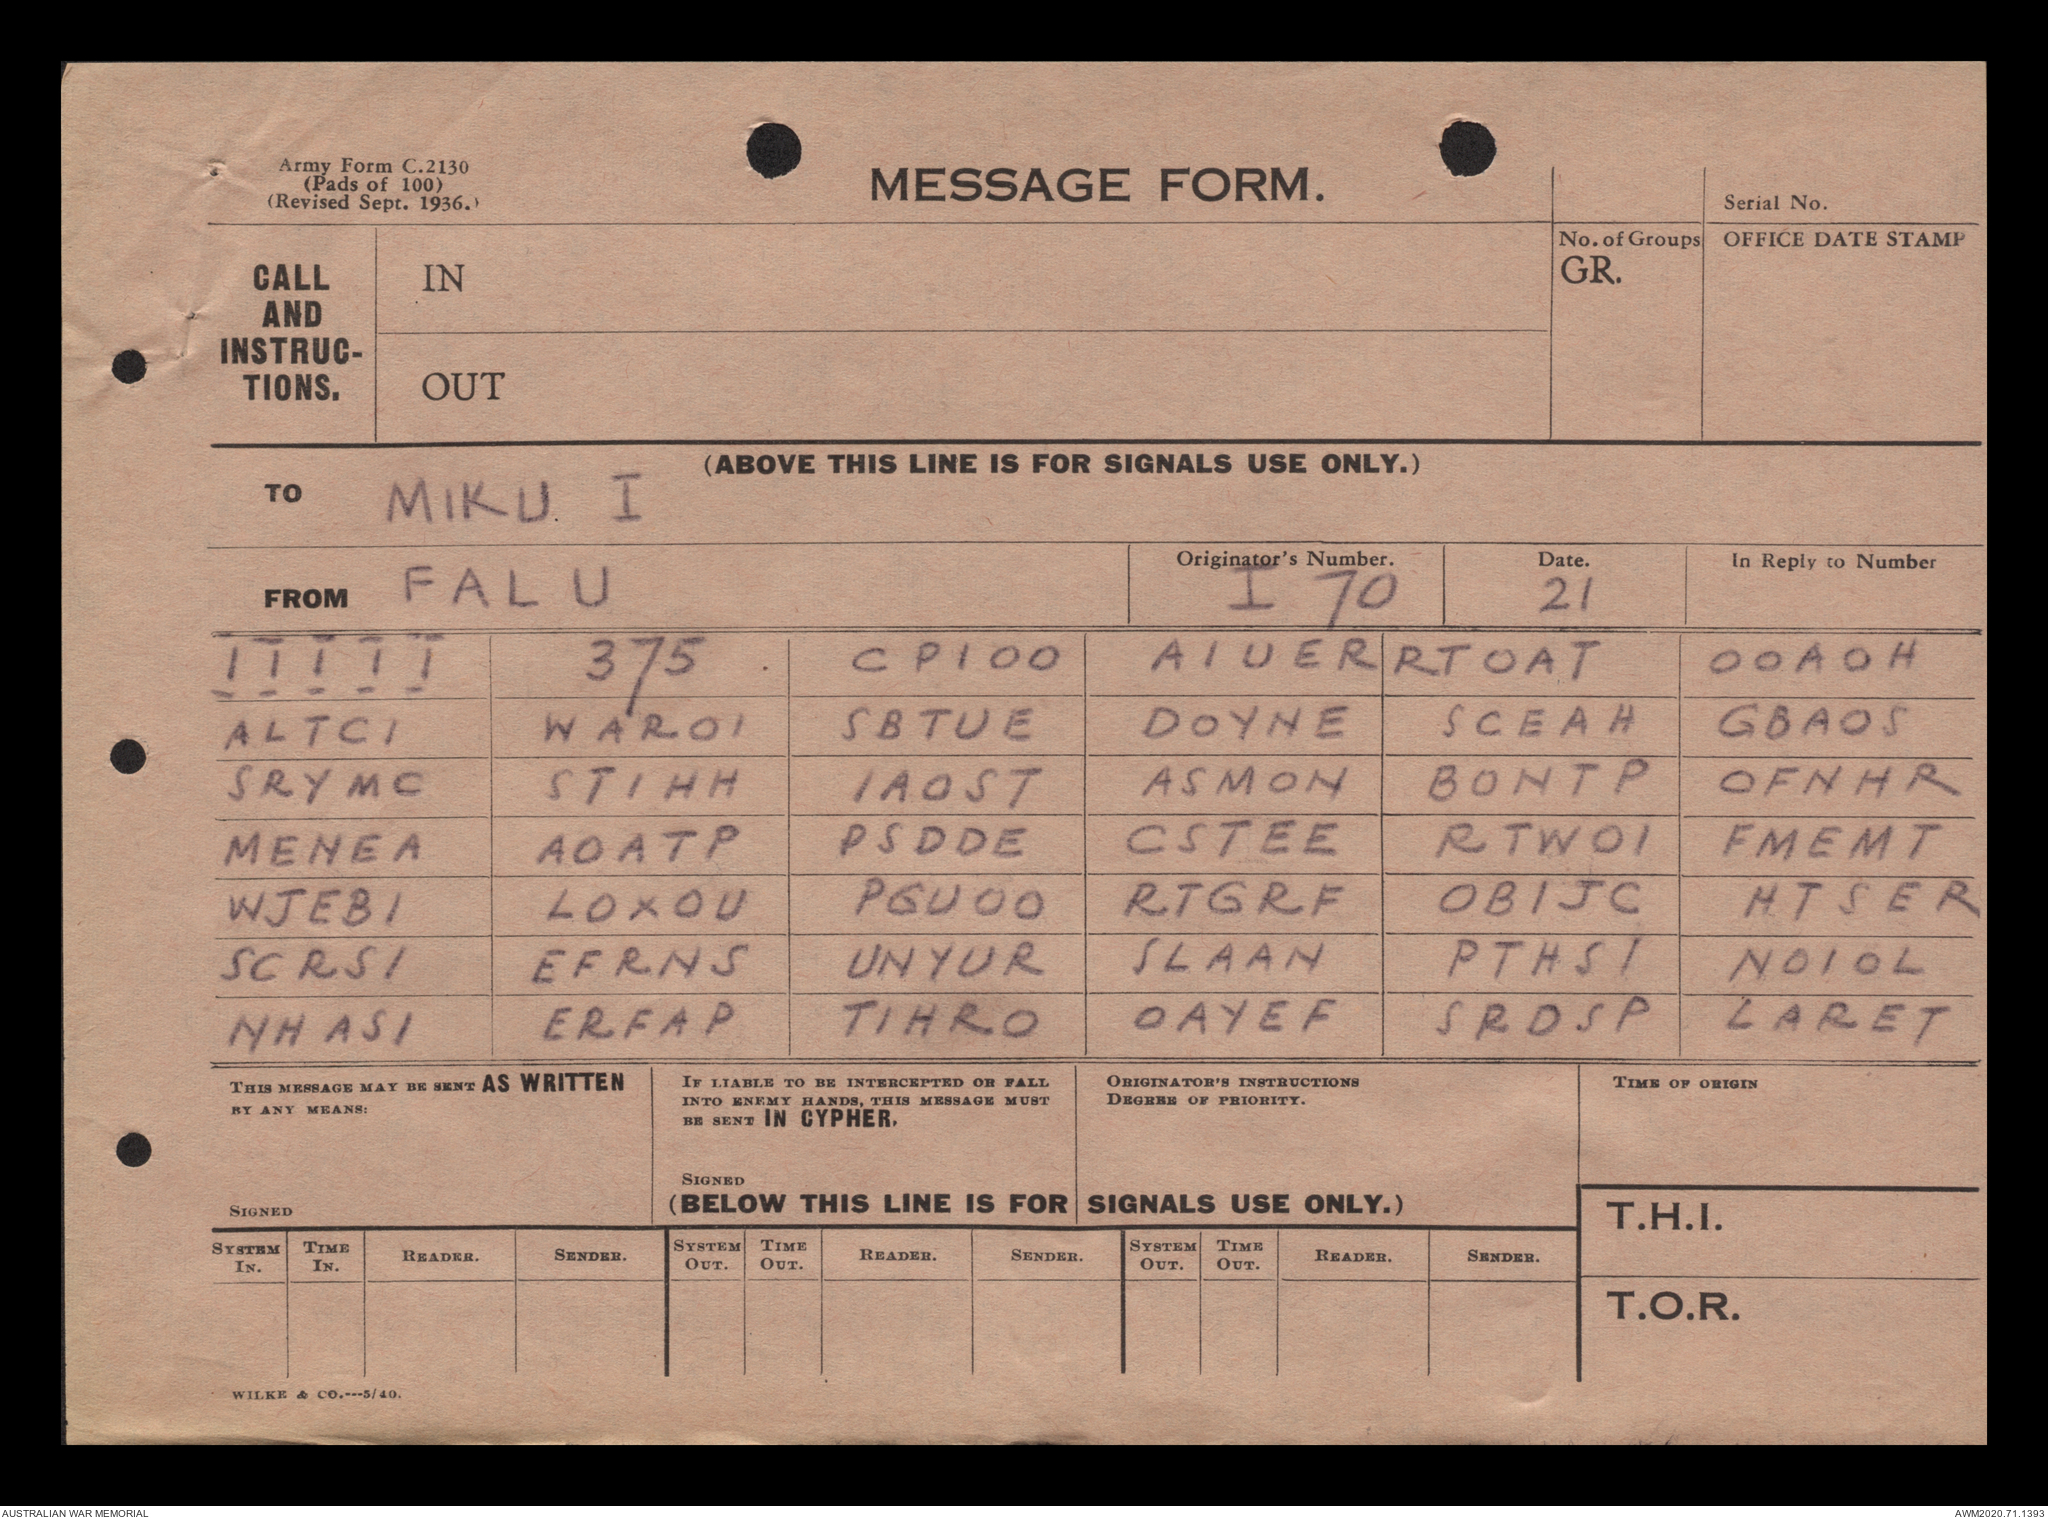 Army Form C.2130
(Pads of 100)
(Revised Sept. 1936.)
MESSAGE FORM.
Serial No.
CALL AND INSTRUC-TIONS.
IN
OUT
No. of Groups
GR.
OFFICE DATE STAMP
(ABOVE THIS LINE IS FOR SIGNALS USE ONLY.)
TO MIKU I
FROM FALU
Originator's Number.
I 70
Date.
21
In Reply to Number
IIIII 375 CPIOO AIUER RTOAT OOAOH
ALTCI WAROI SBTUE DOYNE SCEAH GBAOS
SRYMC STIHH IAOST ASMON BONTP OFNHR
MENEA AOATP PSDDE CSTEE RTWOI FMEMT
WJEBI LOXOU PGUOO RTGRF OBIJC HTSER
SCRSI EFRNS UNYUR SLAAN PTHSI NOIOL
NHASI ERFAP TIHRO OAYEF SRDSP LARET
THIS MESSAGE MAY BE SENT AS WRITTEN
BY ANY MEANS:
SIGNED
IF LIABLE TO BE INTERCEPTED OR FALL
INTO ENEMY HANDS, THIS MESSAGE MUST
BE SENT IN CYPHER.
SIGNED
ORIGINATOR'S INSTRUCTIONS
DEGREE OF PRIORITY.
TIME OF ORIGIN
(BELOW THIS LINE IS FOR SIGNALS USE ONLY.)
T.H.I.
SYSTEM IN. TIME IN. READER. SENDER. SYSTEM OUT. TIME OUT. READER. SENDER. SYSTEM OUT. TIME OUT. READER. SENDER.
T.O.R.
WILKE & CO.---5/40.
AUSTRALIAN WAR MEMORIAL
AWM2020.71.1393